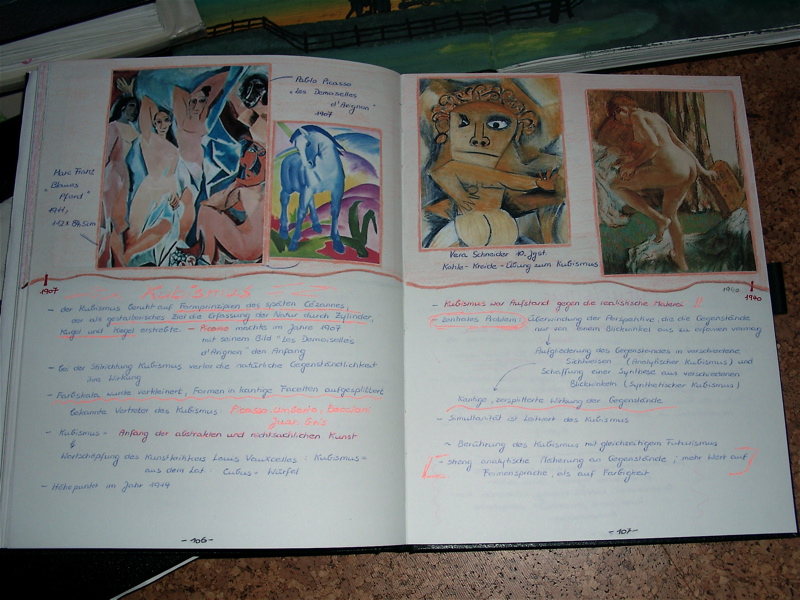 Pablo Picasso
"Les Demoiselles
d'Avignon"
1907
Marc Franz
"Blaues
Pferd"
1911,
112 x 84,5 cm
1907
Kubismus
- der Kubismus beruht auf Formprinzipien des späten Cézannes,
der als gestalterisches Ziel die Erfassung der Natur durch Zylinder,
Kugel und Kegel erstrebte. - Picasso machte im Jahre 1907
mit seinem Bild "Les Demoiselles
d'Avignon" den Anfang
- Bei der Stilrichtung Kubismus verlor die natürliche Gegenständlichkeit
ihre Wirkung
- Farbskala wurde verkleinert, Formen in kantige Facetten aufgesplittert
Bekannte Vertreter des Kubismus: Picasso,
Juan Gris
- Kubismus - Anfang der abstrakten und nichtsachlichen Kunst
Wortschöpfung des Kunstkritikers Louis Vauxcelles: Kubismus -
aus dem Lat.: Cubus - Würfel
- Höhepunkt im Jahr 1914
- 106 -
Vera Schneider 12. Jgst.
Kohle-Kreide-Übung zum Kubismus
1940
- Kubismus war Aufstand gegen die realistische Malerei !!
- zentrales Problem: Überwindung der Perspektive, die die Gegenstände
nur von einem Blickwinkel aus zu erfassen vermag
Aufgliederung des Gegenstandes in verschiedene
Sichtweisen (Analytischer Kubismus) und
Schaffung einer Synthese aus verschiedenen
Blickwinkeln (Synthetischer Kubismus)
Kantige, zersplitterte Wirkung der Gegenstände
- Simultanität ist Leitwort des Kubismus
- Berührung des Kubismus mit gleichzeitigem Futurismus
- streng analytische Näherung an Gegenstände; mehr Wert auf
Formensprache, als auf Farbigkeit
- 107 -